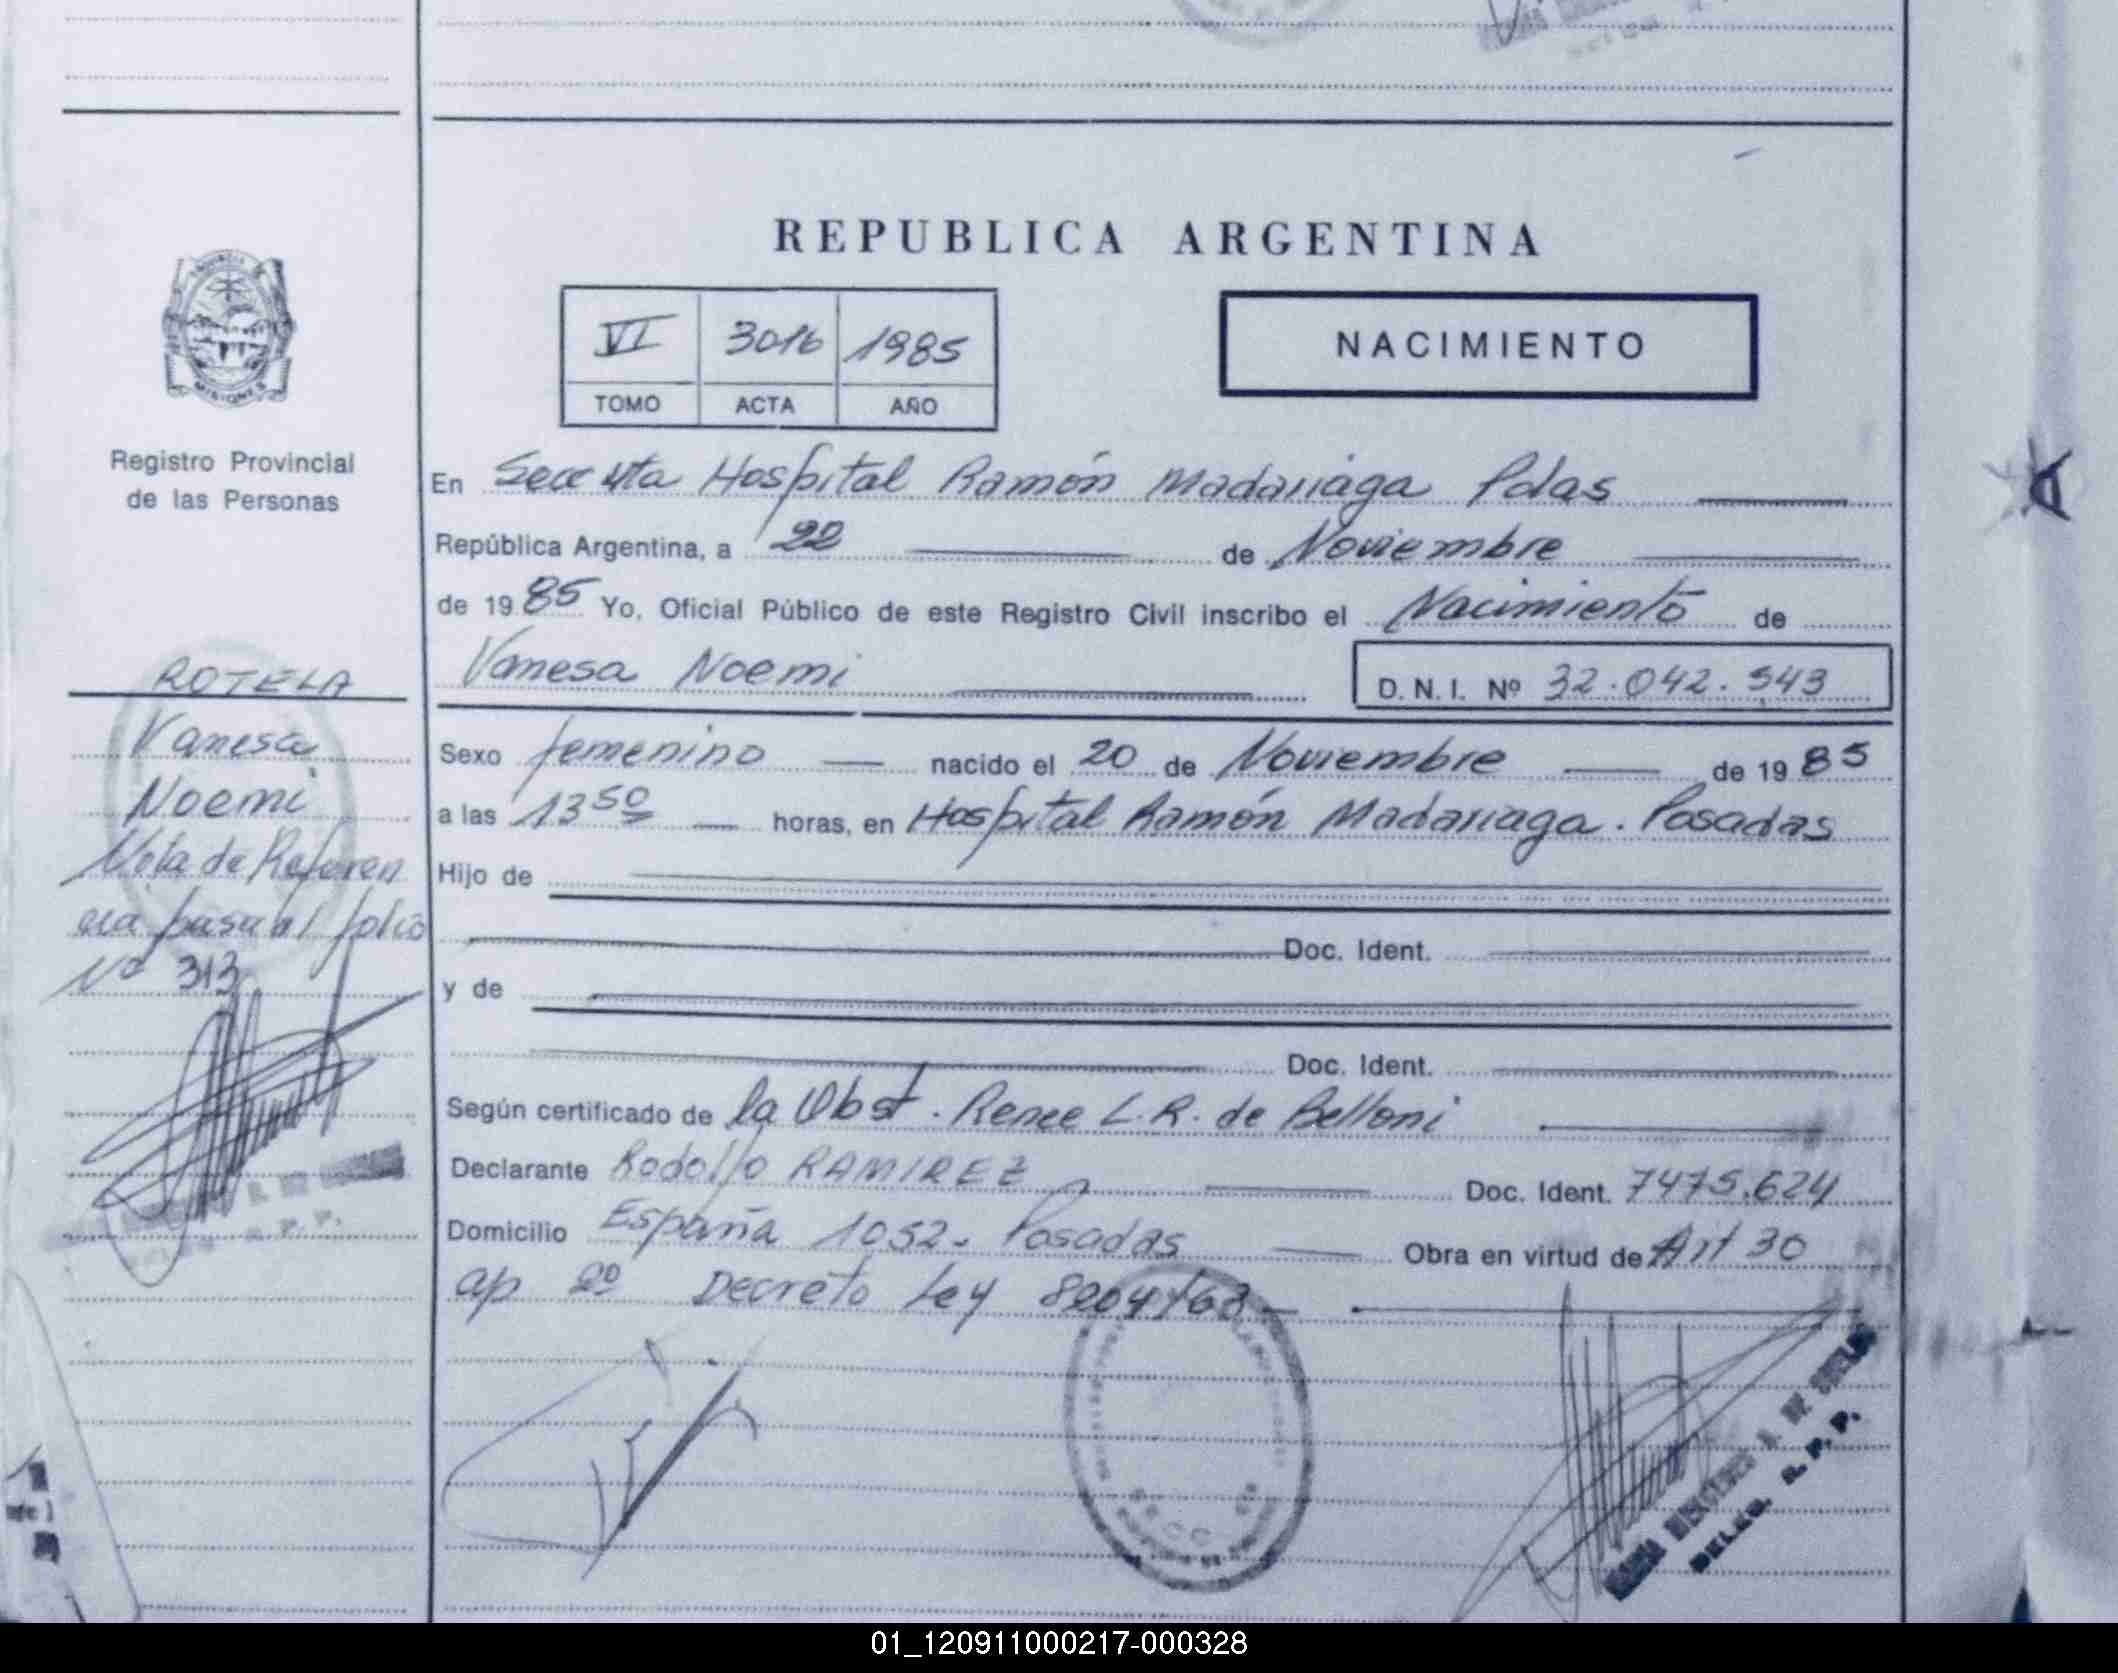 REPUBLICA ARGENTINA
VI 3016 1985
TOMO ACTA AÑO
NACIMIENTO
MISIONES
Registro Provincial
de las Personas
En Secc 4ta Hospital Ramón Madariaga Pdas
República Argentina, a 22 de Noviembre
de 1985 Yo, Oficial Público de este Registro Civil inscribo el Nacimiento de
Vanesa Noemi D. N. I. Nº 32.042.543
Sexo femenino nacido el 20 de Noviembre de 1985
a las 13 50 horas, en Hospital Ramón Madariaga. Posadas
Hijo de
Doc. Ident.
y de
Doc. Ident.
Según certificado de la Obst. Renee L. R. de Belloni
Declarante Rodolfo RAMIREZ Doc. Ident. 7475.624
Domicilio España 1052. Posadas Obra en virtud de Art 30
ap 2º Decreto Ley 8204/63
ROTELA
Vanesa
Noemi
Nota de Referen
cia pasa al folio
Nº 313
DELEG. R. P. P.
01_120911000217-000328